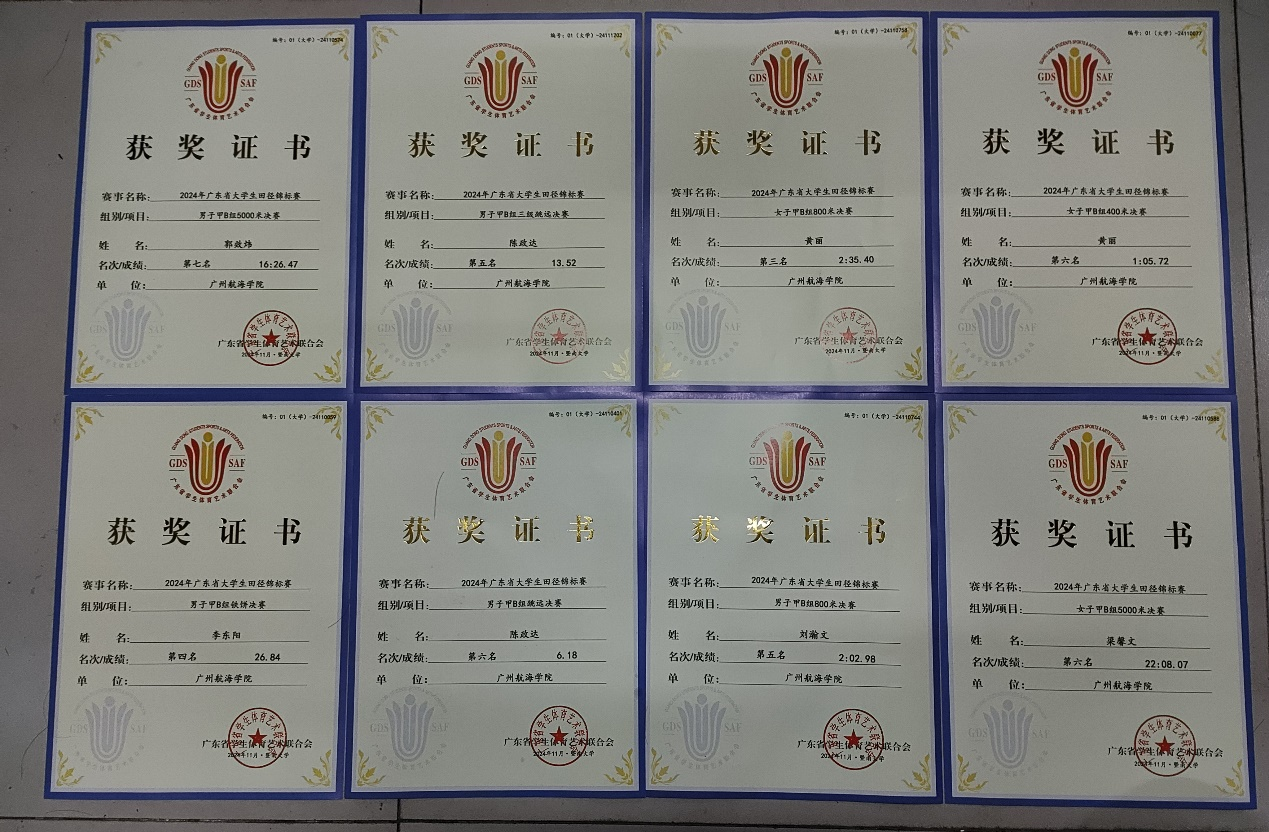 编号：01（大学）-24110574
GUANG DONG STUDENTS SPORTS & ARTS FEDERATION
GDS SAF
广东省学生体育艺术联合会
获奖证书
赛事名称：2024年广东省大学生田径锦标赛
组别/项目：男子甲B组5000米决赛
姓名：郭效炜
名次/成绩：第七名 16:26.47
单位：广州航海学院
GDS SAF
广东省学生体育艺术联合会
2024年11月·暨南大学
编号：01（大学）-24111202
GUANG DONG STUDENTS SPORTS & ARTS FEDERATION
GDS SAF
广东省学生体育艺术联合会
获奖证书
赛事名称：2024年广东省大学生田径锦标赛
组别/项目：男子甲B组三级跳远决赛
姓名：陈政达
名次/成绩：第五名 13.52
单位：广州航海学院
GDS SAF
广东省学生体育艺术联合会
2024年11月·暨南大学
编号：01（大学）-24110758
GUANG DONG STUDENTS SPORTS & ARTS FEDERATION
GDS SAF
广东省学生体育艺术联合会
获奖证书
赛事名称：2024年广东省大学生田径锦标赛
组别/项目：女子甲B组800米决赛
姓名：黄丽
名次/成绩：第三名 2:35.40
单位：广州航海学院
GDS SAF
广东省学生体育艺术联合会
2024年11月·暨南大学
编号：01（大学）-24110677
GUANG DONG STUDENTS SPORTS & ARTS FEDERATION
GDS SAF
广东省学生体育艺术联合会
获奖证书
赛事名称：2024年广东省大学生田径锦标赛
组别/项目：女子甲B组400米决赛
姓名：黄丽
名次/成绩：第六名 1:05.72
单位：广州航海学院
GDS SAF
广东省学生体育艺术联合会
2024年11月·暨南大学
编号：01（大学）-24110059
GUANG DONG STUDENTS SPORTS & ARTS FEDERATION
GDS SAF
广东省学生体育艺术联合会
获奖证书
赛事名称：2024年广东省大学生田径锦标赛
组别/项目：男子甲B组铁饼决赛
姓名：李东阳
名次/成绩：第四名 26.84
单位：广州航海学院
GDS SAF
广东省学生体育艺术联合会
2024年11月·暨南大学
编号：01（大学）-24110401
GUANG DONG STUDENTS SPORTS & ARTS FEDERATION
GDS SAF
广东省学生体育艺术联合会
获奖证书
赛事名称：2024年广东省大学生田径锦标赛
组别/项目：男子甲B组跳远决赛
姓名：陈政达
名次/成绩：第六名 6.18
单位：广州航海学院
GDS SAF
广东省学生体育艺术联合会
2024年11月·暨南大学
编号：01（大学）-24110744
GUANG DONG STUDENTS SPORTS & ARTS FEDERATION
GDS SAF
广东省学生体育艺术联合会
获奖证书
赛事名称：2024年广东省大学生田径锦标赛
组别/项目：男子甲B组800米决赛
姓名：刘瀚文
名次/成绩：第五名 2:02.98
单位：广州航海学院
GDS SAF
广东省学生体育艺术联合会
2024年11月·暨南大学
编号：01（大学）-24110588
GUANG DONG STUDENTS SPORTS & ARTS FEDERATION
GDS SAF
广东省学生体育艺术联合会
获奖证书
赛事名称：2024年广东省大学生田径锦标赛
组别/项目：女子甲B组5000米决赛
姓名：梁馨文
名次/成绩：第六名 22:08.07
单位：广州航海学院
GDS SAF
广东省学生体育艺术联合会
2024年11月·暨南大学